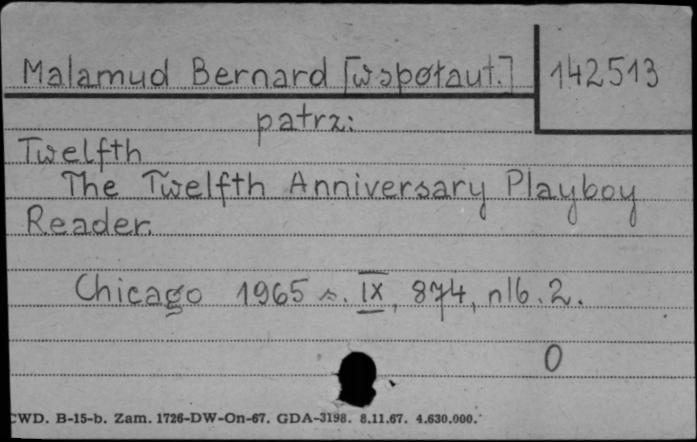 Malamud Bernard [współaut.] 142513
patrz:
Twelfth
The Twelfth Anniversary Playboy
Reader.
Chicago 1965 s. IX, 874, nlb. 2.
0
CWD. B-15-b. Zam. 1726-DW-On-67. GDA-3198. 8.11.67. 4.630.000.